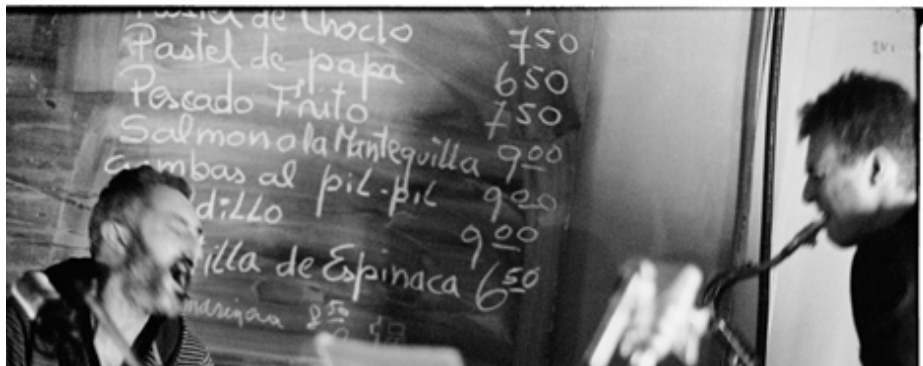 Pastel de Choclo 750
Pastel de papa 650
Pescado Frito 750
Salmon a la Mantequilla 900
al pil-pil 900
900
de Espinaca 650
850